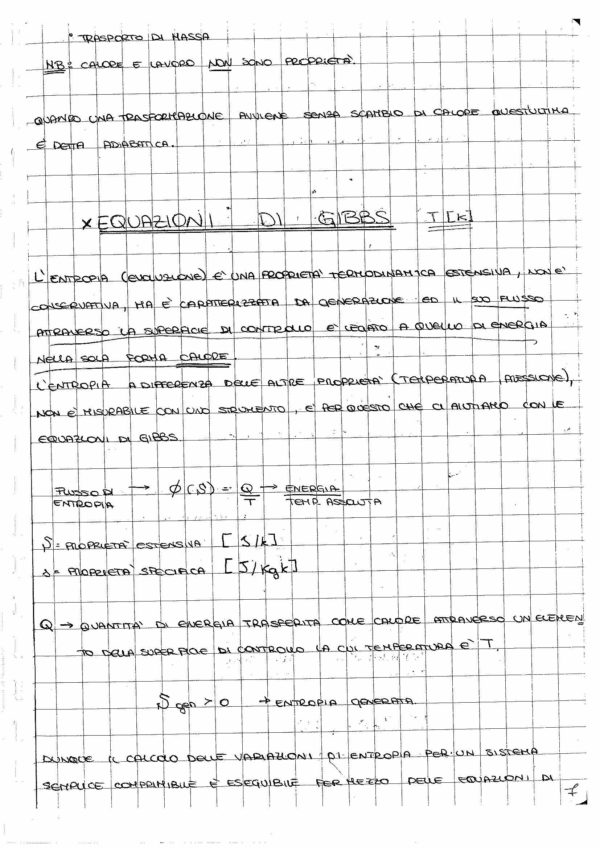 ° TRASPORTO DI MASSA
NB: CALORE E LAVORO NON SONO PROPRIETA'.
QUANDO UNA TRASFORMAZIONE AVVIENE SENZA SCAMBIO DI CALORE QUEST'ULTIMA
E' DETTA ADIABATICA.
× EQUAZIONI DI GIBBS T [K]
L'ENTROPIA (EVOLUZIONE) E' UNA PROPRIETA' TERMODINAMICA ESTENSIVA, NON E'
CONSERVATIVA, MA E' CARATTERIZZATA DA GENERAZIONE ED IL SUO FLUSSO
ATTRAVERSO LA SUPERFICIE DI CONTROLLO E' LEGATO A QUELLO DI ENERGIA
NELLA SOLA FORMA CALORE.
L'ENTROPIA A DIFFERENZA DELLE ALTRE PROPRIETA' (TEMPERATURA, PRESSIONE),
NON E' MISURABILE CON UNO STRUMENTO, E' PER QUESTO CHE CI AIUTIAMO CON LE
EQUAZIONI DI GIBBS.
FLUSSO DI ENTROPIA → φ(S) = Q/T → ENERGIA/TEMP. ASSOLUTA
S = PROPRIETA' ESTENSIVA [J/K]
s = PROPRIETA' SPECIFICA [J/kg K]
Q → QUANTITA' DI ENERGIA TRASFERITA COME CALORE ATTRAVERSO UN ELEMEN
TO DELLA SUPERFICIE DI CONTROLLO LA CUI TEMPERATURA E' T.
S gen > 0 → ENTROPIA GENERATA
DUNQUE IL CALCOLO DELLE VARIAZIONI DI ENTROPIA PER UN SISTEMA
SEMPLICE COMPRIMIBILE E' ESEGUIBILE PER MEZZO DELLE EQUAZIONI DI
7